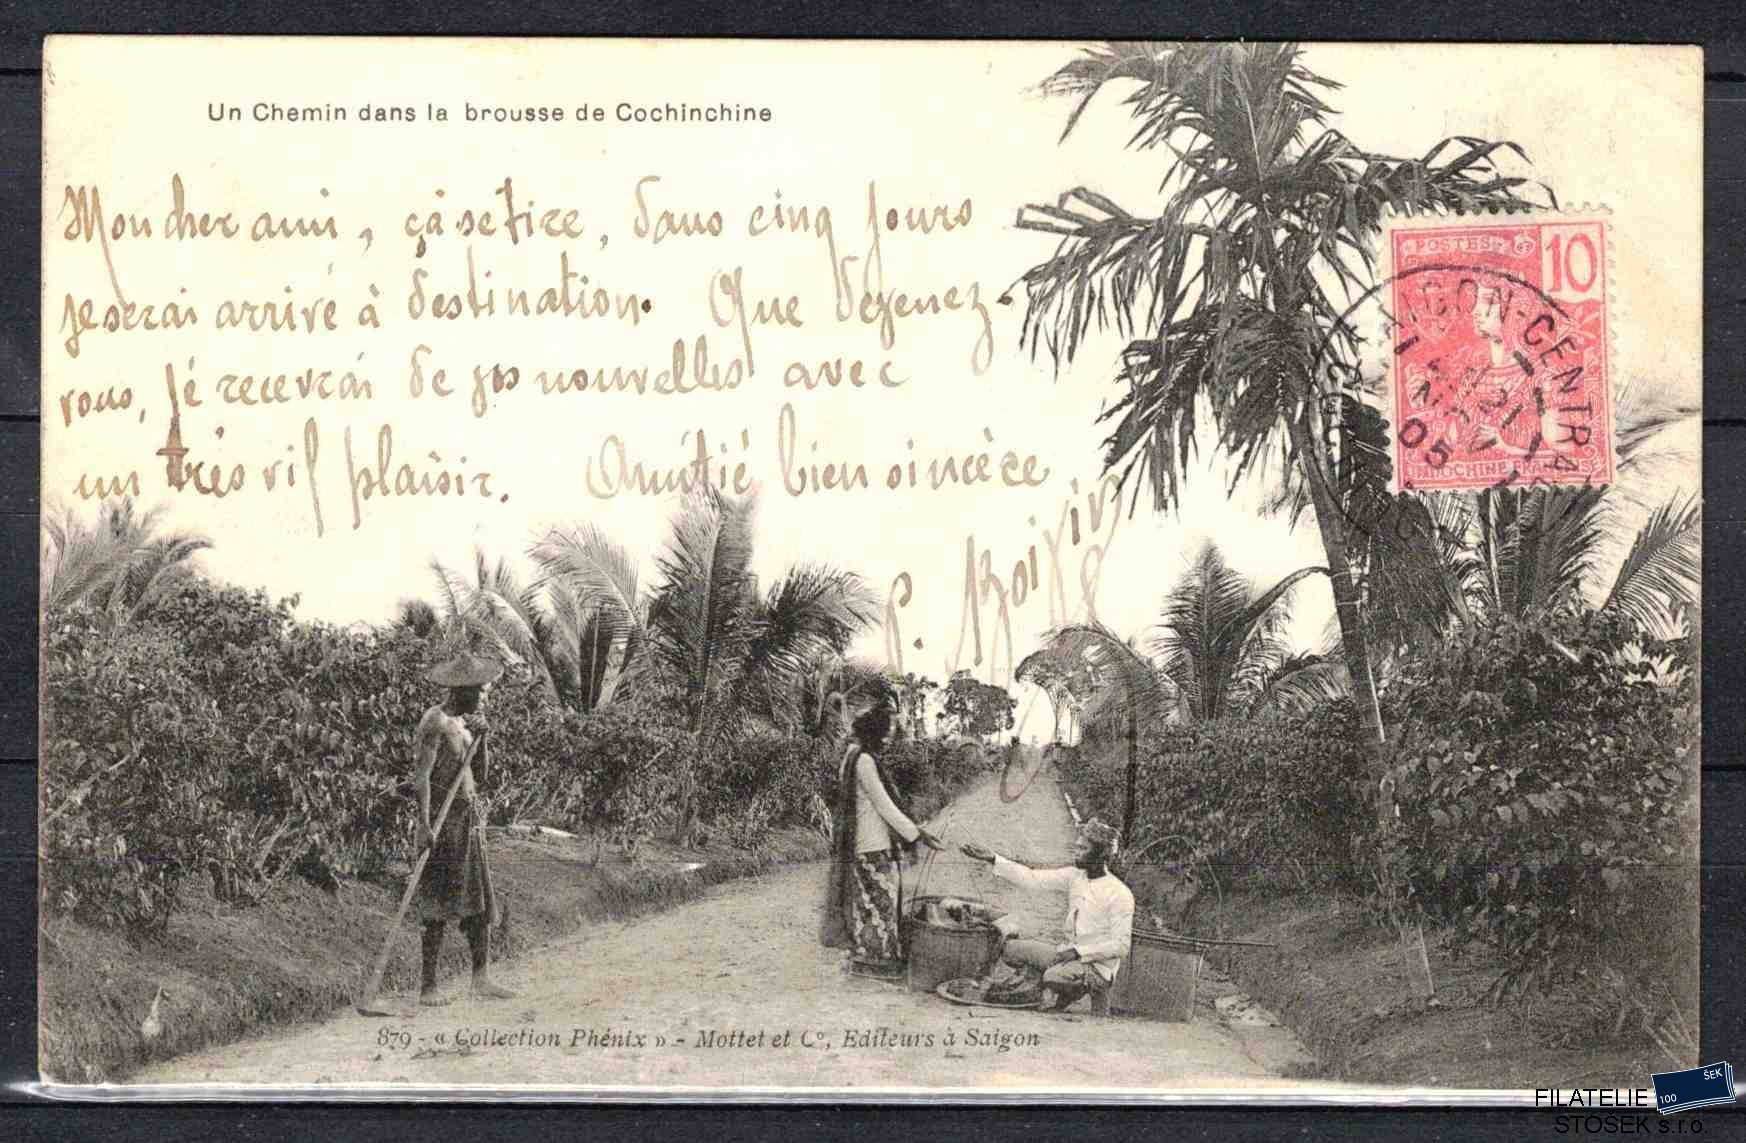 Un Chemin dans la brousse de Cochinchine
Mon cher ami, çà se tire, dans cinq jours
je serai arrivé à destination. Que devenez-
vous, jé recevrai de vos nouvelles avec
un très vif plaisir. Amitié bien sincère
P. Boivin
POSTES
10
SAIGON-CENTRAL
21
NOV
05
COCHINCHINE
INDOCHINE FRANÇAISE
879 - « Collection Phénix » - Mottet et Cº, Editeurs à Saigon
ŠEK
100
FILATELIE
STOSEK s.r.o.